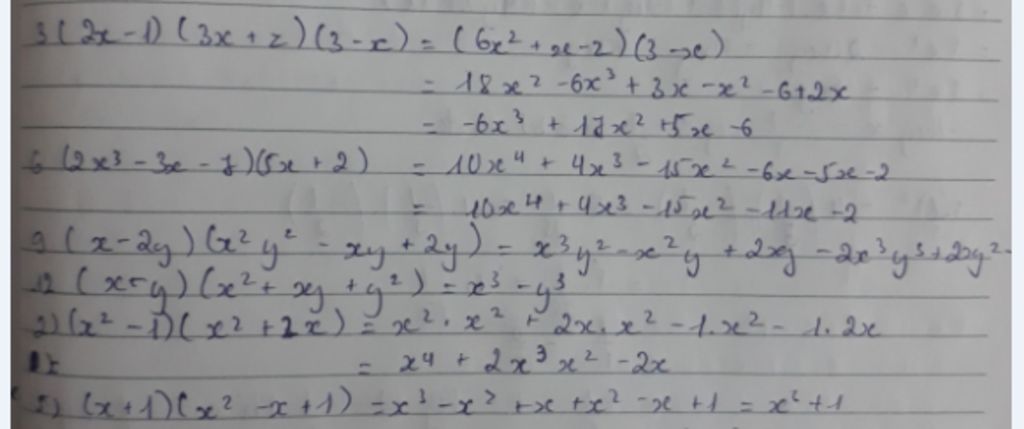 3 (2x-1) (3x+2)(3-x) = (6x² + x-2)(3-x)
= 18x² -6x³ + 3x -x² -6+2x
= -6x³ + 17x² +5x -6
6 (2x³ - 3x - 1)(5x+2) = 10x⁴ + 4x³ - 15x² -6x -5x -2
= 10x⁴ + 4x³ -15x² -11x -2
9 (x-2y)(x²y² - xy + 2y) = x³y² - x²y + 2xy - 2x³y³ + 2xy² -
12 (x-y)(x² + xy + y²) = x³ - y³
2) (x² - 1)(x² + 2x) = x². x² + 2x. x² - 1.x² - 1. 2x
= x⁴ + 2x³ x² -2x
5) (x+1)(x² -x+1) =x³ -x² +x +x² -x +1 = x² +1